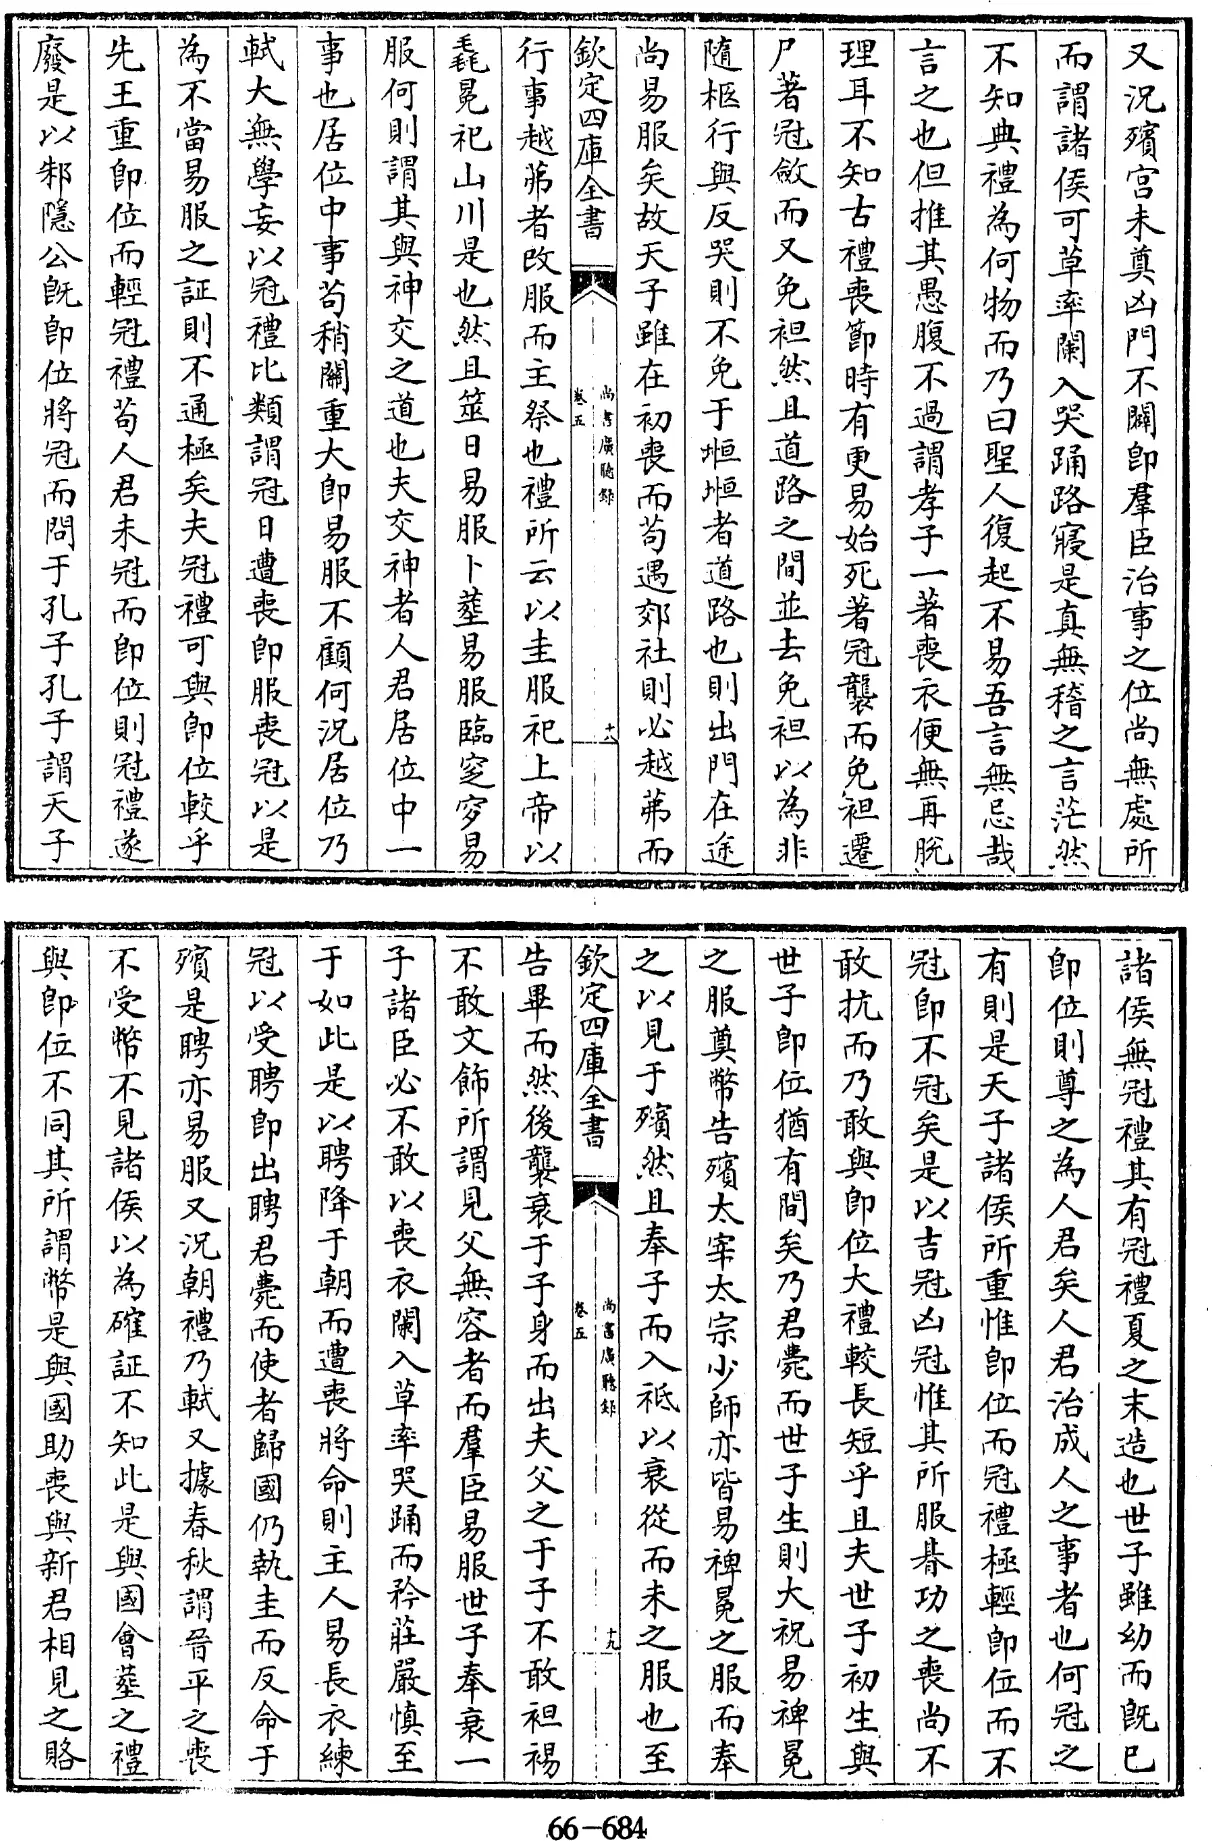 又況殯宮未奠凶門不闢即羣臣治事之位尚無處所
而謂諸侯可草率闌入哭踊路寢是真無稽之言茫然
不知典禮為何物而乃曰聖人復起不易吾言無忌哉
言之也但推其愚腹不過謂孝子一著喪衣便無再脫
理耳不知古禮喪節時有更易始死著冠襲而免袒遷
尸著冠斂而又免袒然且道路之間並去免袒以為非
隨柩行與反哭則不免于堩堩者道路也則出門在途
尚易服矣故天子雖在初喪而苟遇郊社則必越茀而
欽定四庫全書
尚書廣聽錄
卷五
十八
行事越茀者改服而主祭也禮所云以圭服祀上帝以
毳冕祀山川是也然且筮日易服卜塟易服臨窆穸易
服何則謂其與神交之道也夫交神者人君居位中一
事也居位中事苟稍關重大即易服不顧何況居位乃
軾大無學妄以冠禮比類謂冠日遭喪即服喪冠以是
為不當易服之証則不通極矣夫冠禮可與即位較乎
先王重即位而輕冠禮苟人君未冠而即位則冠禮遂
廢是以邾隱公旣即位將冠而問于孔子孔子謂天子
諸侯無冠禮其有冠禮夏之末造也世子雖幼而旣已
即位則尊之為人君矣人君治成人之事者也何冠之
有則是天子諸侯所重惟即位而冠禮極輕即位而不
冠即不冠矣是以吉冠凶冠惟其所服朞功之喪尚不
敢抗而乃敢與即位大禮較長短乎且夫世子初生與
世子即位猶有間矣乃君薨而世子生則大祝易裨冕
之服奠幣告殯太宰太宗少師亦皆易裨冕之服而奉
之以見于殯然且奉子而入袛以衰從而未之服也至
欽定四庫全書
尚書廣聽錄
卷五
十九
告畢而然後襲衰于子身而出夫父之于子不敢袒裼
不敢文飾所謂見父無容者而羣臣易服世子奉衰一
子諸臣必不敢以喪衣闌入草率哭踊而矜莊嚴慎至
于如此是以聘降于朝而遭喪將命則主人易長衣練
冠以受聘即出聘君薨而使者歸國仍執圭而反命于
殯是聘亦易服又況朝禮乃軾又據春秋謂晉平之喪
不受幣不見諸侯以為確証不知此是與國會塟之禮
與即位不同其所謂幣是與國助喪與新君相見之賂
66-684